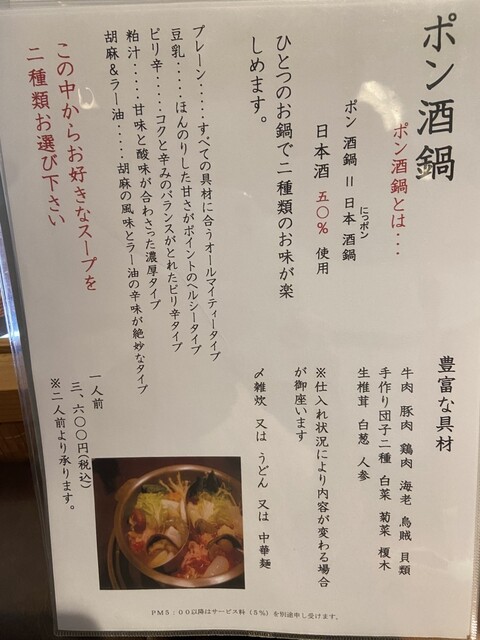 ポン酒鍋
ポン酒鍋とは・・・
ポン 酒鍋 = 日本 酒鍋
にっポン
日本酒 五〇% 使用
ひとつのお鍋で二種類のお味が楽
しめます。
プレーン・・・・・すべての具材に合うオールマイティータイプ
豆乳・・・・・ほんのりした甘さがポイントのヘルシータイプ
ピリ辛・・・・・コクと辛みのバランスがとれたピリ辛タイプ
粕汁・・・・・甘味と酸味が合わさった濃厚タイプ
胡麻&ラー油・・・・・胡麻の風味とラー油の辛味が絶妙なタイプ
この中からお好きなスープを
二種類お選び下さい
豊富な具材
牛肉 豚肉 鶏肉 海老 烏賊 貝類
手作り団子二種 白菜 菊菜 榎木
生椎茸 白葱 人参
※仕入れ状況により内容が変わる場合
が御座います
〆雑炊 又は うどん 又は 中華麺
一人前
三、六〇〇円(税込)
※二人前より承ります。
PM5:00以降はサービス料(5%)を別途申し受けます。